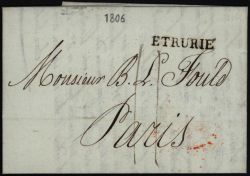 1806
ETRURIE
Monsieur B. L. Fould
Paris